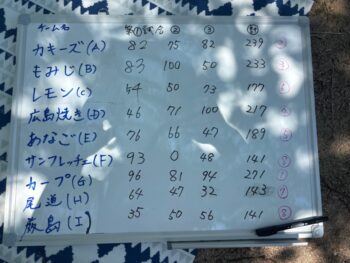 チーム名 第①試合 ② ③ 計
カキーズ(A) 82 75 82 239
もみじ(B) 83 100 50 233 ③
レモン(C) 54 50 73 177
広島焼き(D) 46 71 100 217
あなご(E) 76 66 47 189 ⑤
サンフレッチェ(F) 93 0 48 141 ⑧
カープ(G) 96 81 94 271 ①
尾道(H) 64 47 32 143 ⑦
厳島(I) 35 50 56 141 ⑧